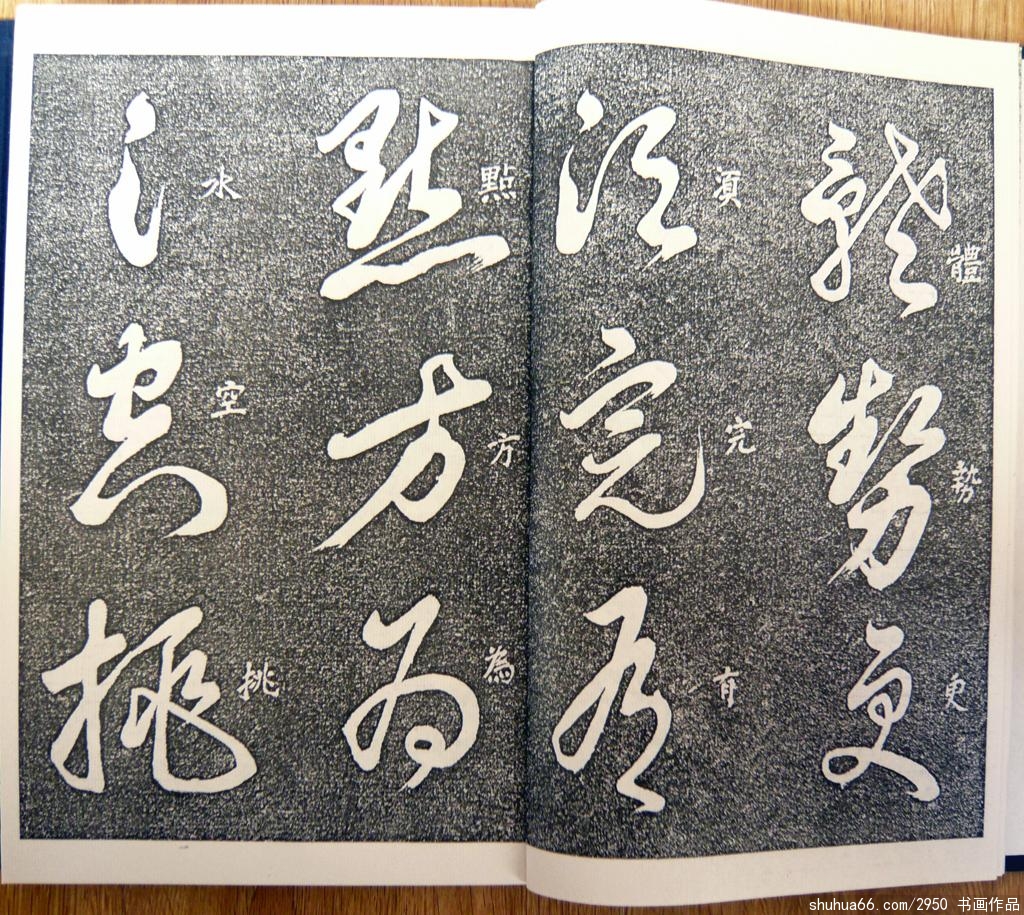 體勢更
須完有
點方為
水空挑
shuhua66.com/2950 书画作品